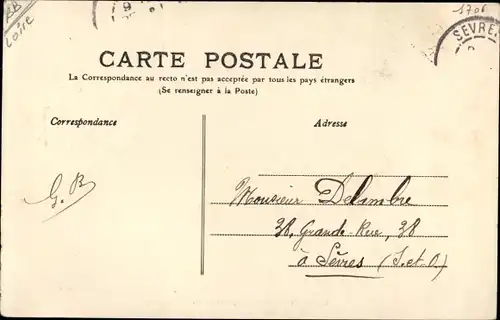 BB
Loire
1706
SEVRES
CARTE POSTALE
La Correspondance au recto n'est pas acceptée par tous les pays étrangers
(Se renseigner à la Poste)
Correspondance
Adresse
G. B
Monsieur Delambre
38, Grande-Rue, 38
à Sèvres (S.et-O.)